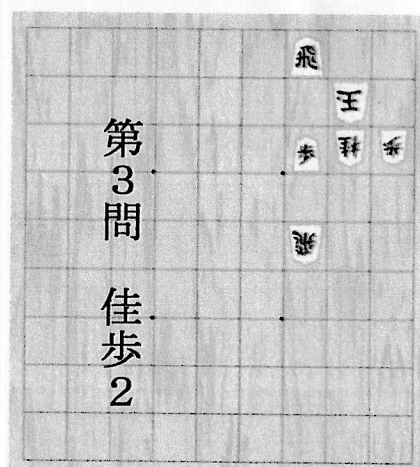 第3問 佳歩2
飛
王
歩
桂
歩
飛